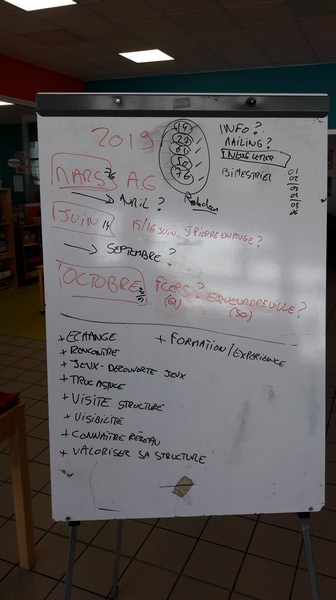 2019
14
27
61
50
76
INFO?
MAILING?
NEWS LETTER
BIMESTRIEL
MARS AG
AVRIL?
JUIN 14
15/16 JUIN ST PIERRE EN AUGE?
SEPTEMBRE?
OCTOBRE FLERS? EQUEURDREVILLE?
(61) (50)
+ ECHANGE
+ FORMATION/EXPÉRIENCE
+ RENCONTRE
+ JEUX - DÉCOUVERTE JEUX
+ TRUC ASTUCE
+ VISITE STRUCTURE
+ VISIBILITÉ
+ CONNAÎTRE RÉSEAU
+ VALORISER SA STRUCTURE